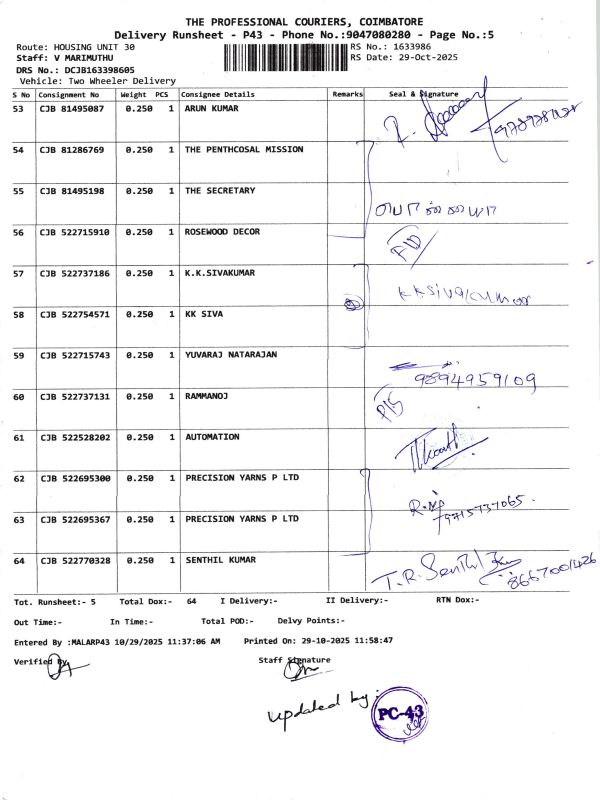 THE PROFESSIONAL COURIERS, COIMBATORE
Delivery Runsheet - P43 - Phone No.:9047080280 - Page No.:5
Route: HOUSING UNIT 30 RS No.: 1633986
Staff: V MARIMUTHU RS Date: 29-Oct-2025
DRS No.: DCJB163398605
Vehicle: Two Wheeler Delivery
S No Consignment No Weight PCS Consignee Details Remarks Seal & Signature
53 CJB 81495087 0.250 1 ARUN KUMAR
54 CJB 81286769 0.250 1 THE PENTHCOSAL MISSION
55 CJB 81495198 0.250 1 THE SECRETARY
56 CJB 522715910 0.250 1 ROSEWOOD DECOR
57 CJB 522737186 0.250 1 K.K.SIVAKUMAR KKSivakumar
58 CJB 522754571 0.250 1 KK SIVA
59 CJB 522715743 0.250 1 YUVARAJ NATARAJAN 9894959109
60 CJB 522737131 0.250 1 RAMMANOJ
61 CJB 522528202 0.250 1 AUTOMATION
62 CJB 522695300 0.250 1 PRECISION YARNS P LTD 9715737065.
63 CJB 522695367 0.250 1 PRECISION YARNS P LTD
64 CJB 522770328 0.250 1 SENTHIL KUMAR T.R. Senthil 8667001426
Tot. Runsheet:- 5 Total Dox:- 64 I Delivery:- II Delivery:- RTN Dox:-
Out Time:- In Time:- Total POD:- Delvy Points:-
Entered By :MALARP43 10/29/2025 11:37:06 AM Printed On: 29-10-2025 11:58:47
Verified By Staff Signature
updated by:
PC-43